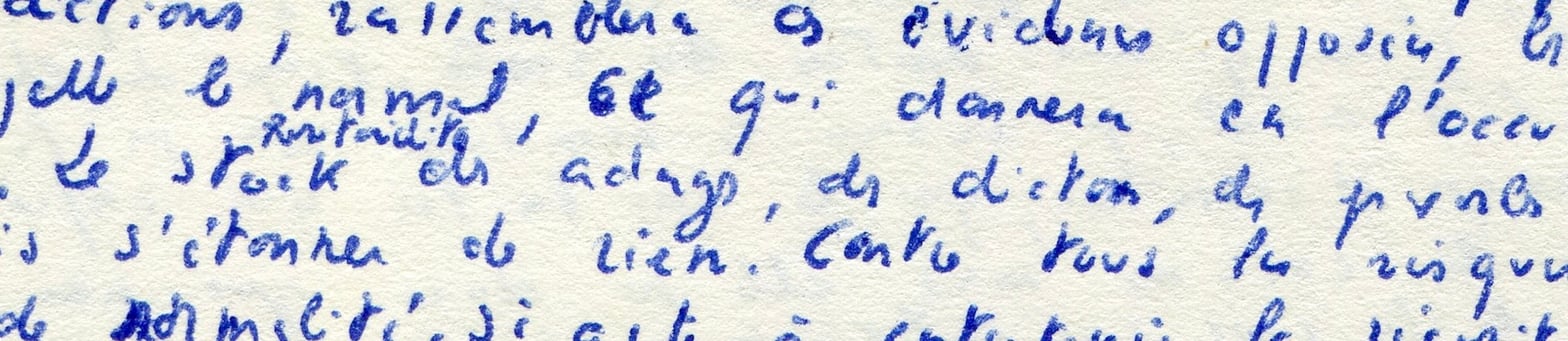 rassemblera les évidences opposées, les
le normal, et qui donnera en l'occu
Le stock des adages, des dictons, des proverbes
s'étonner de rien. Contre tous les risques
de normalité, si à entretenir la